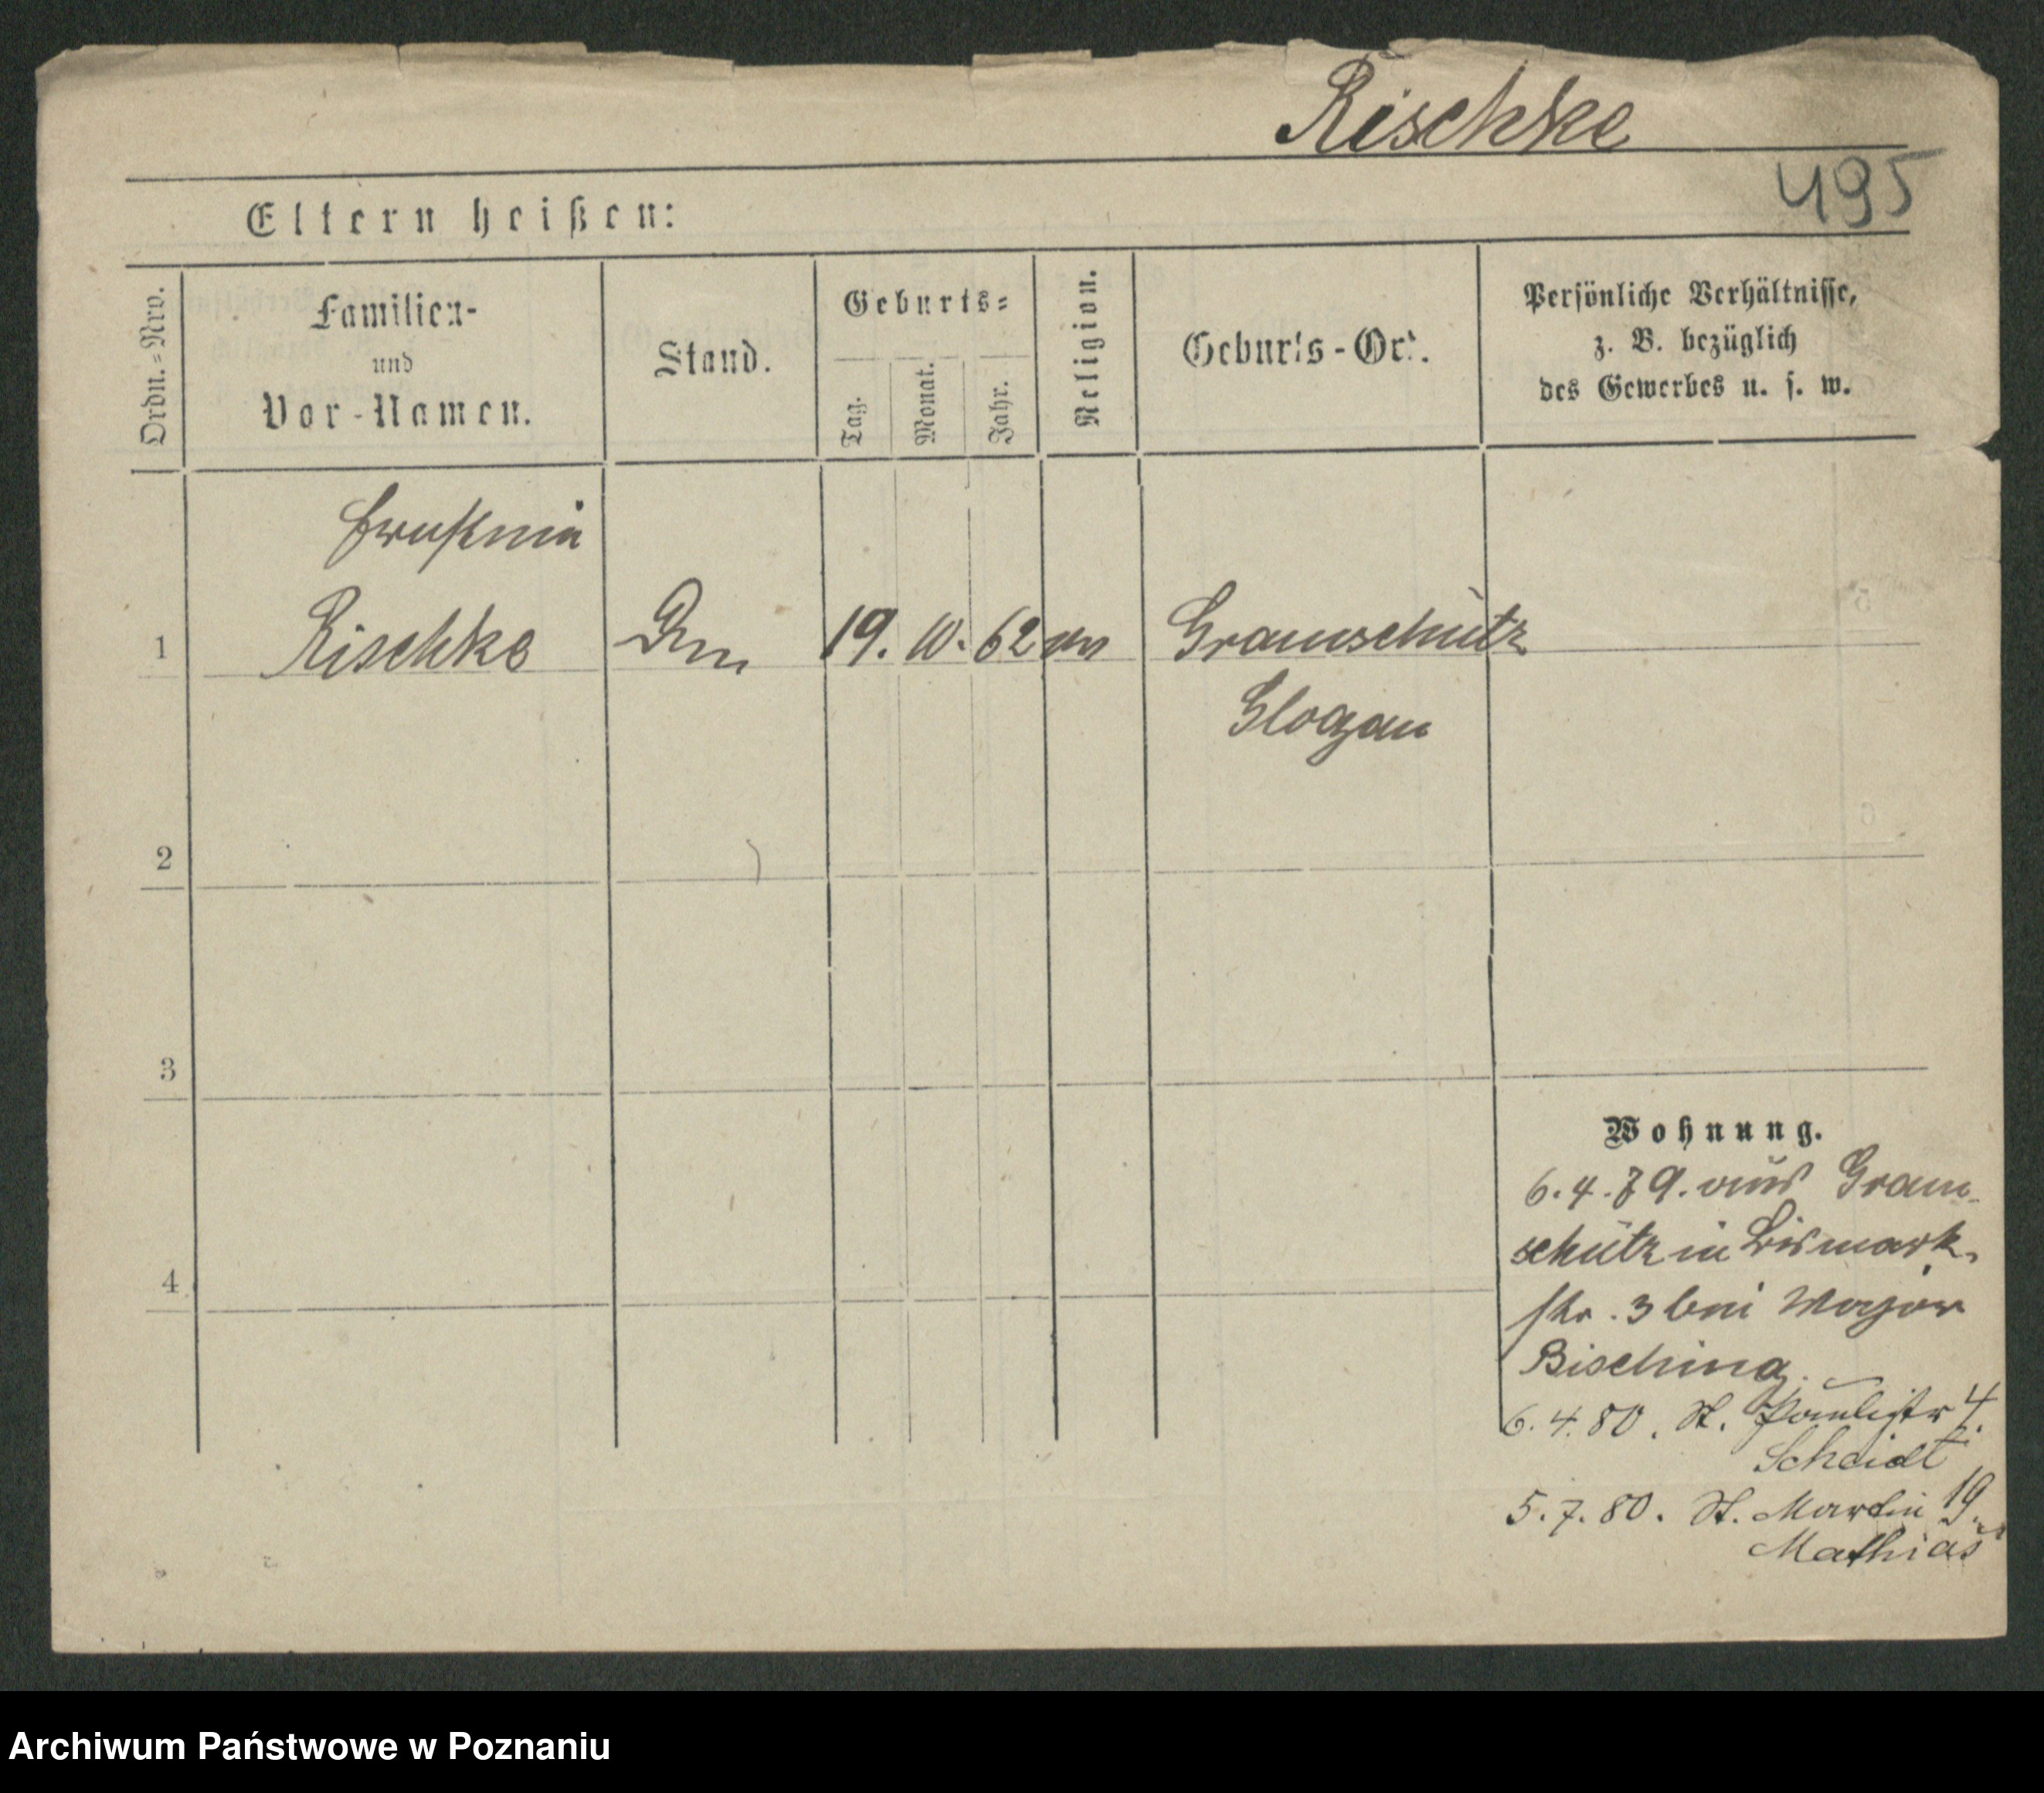 Rischke
495
Eltern heißen:
Ordn.-Nro.
Familien-
und
Vor-Namen.
Stand.
Geburts-
Tag.
Monat.
Jahr.
Religion.
Geburts-Ort.
Persönliche Verhältnisse,
z. B. bezüglich
des Gewerbes u. s. w.
Ernstine
1 Rischke 19. 10. 62 Gramschütz
Glogau
2
3
4
Wohnung.
6.4.79. aus Gram-
schütz in Bismark-
str. 3 bei Major
Bisching.
6.4.80. St. Paulistr 4.
Scheidt
5.7.80. St. Martin 19.
Mathias
Archiwum Państwowe w Poznaniu